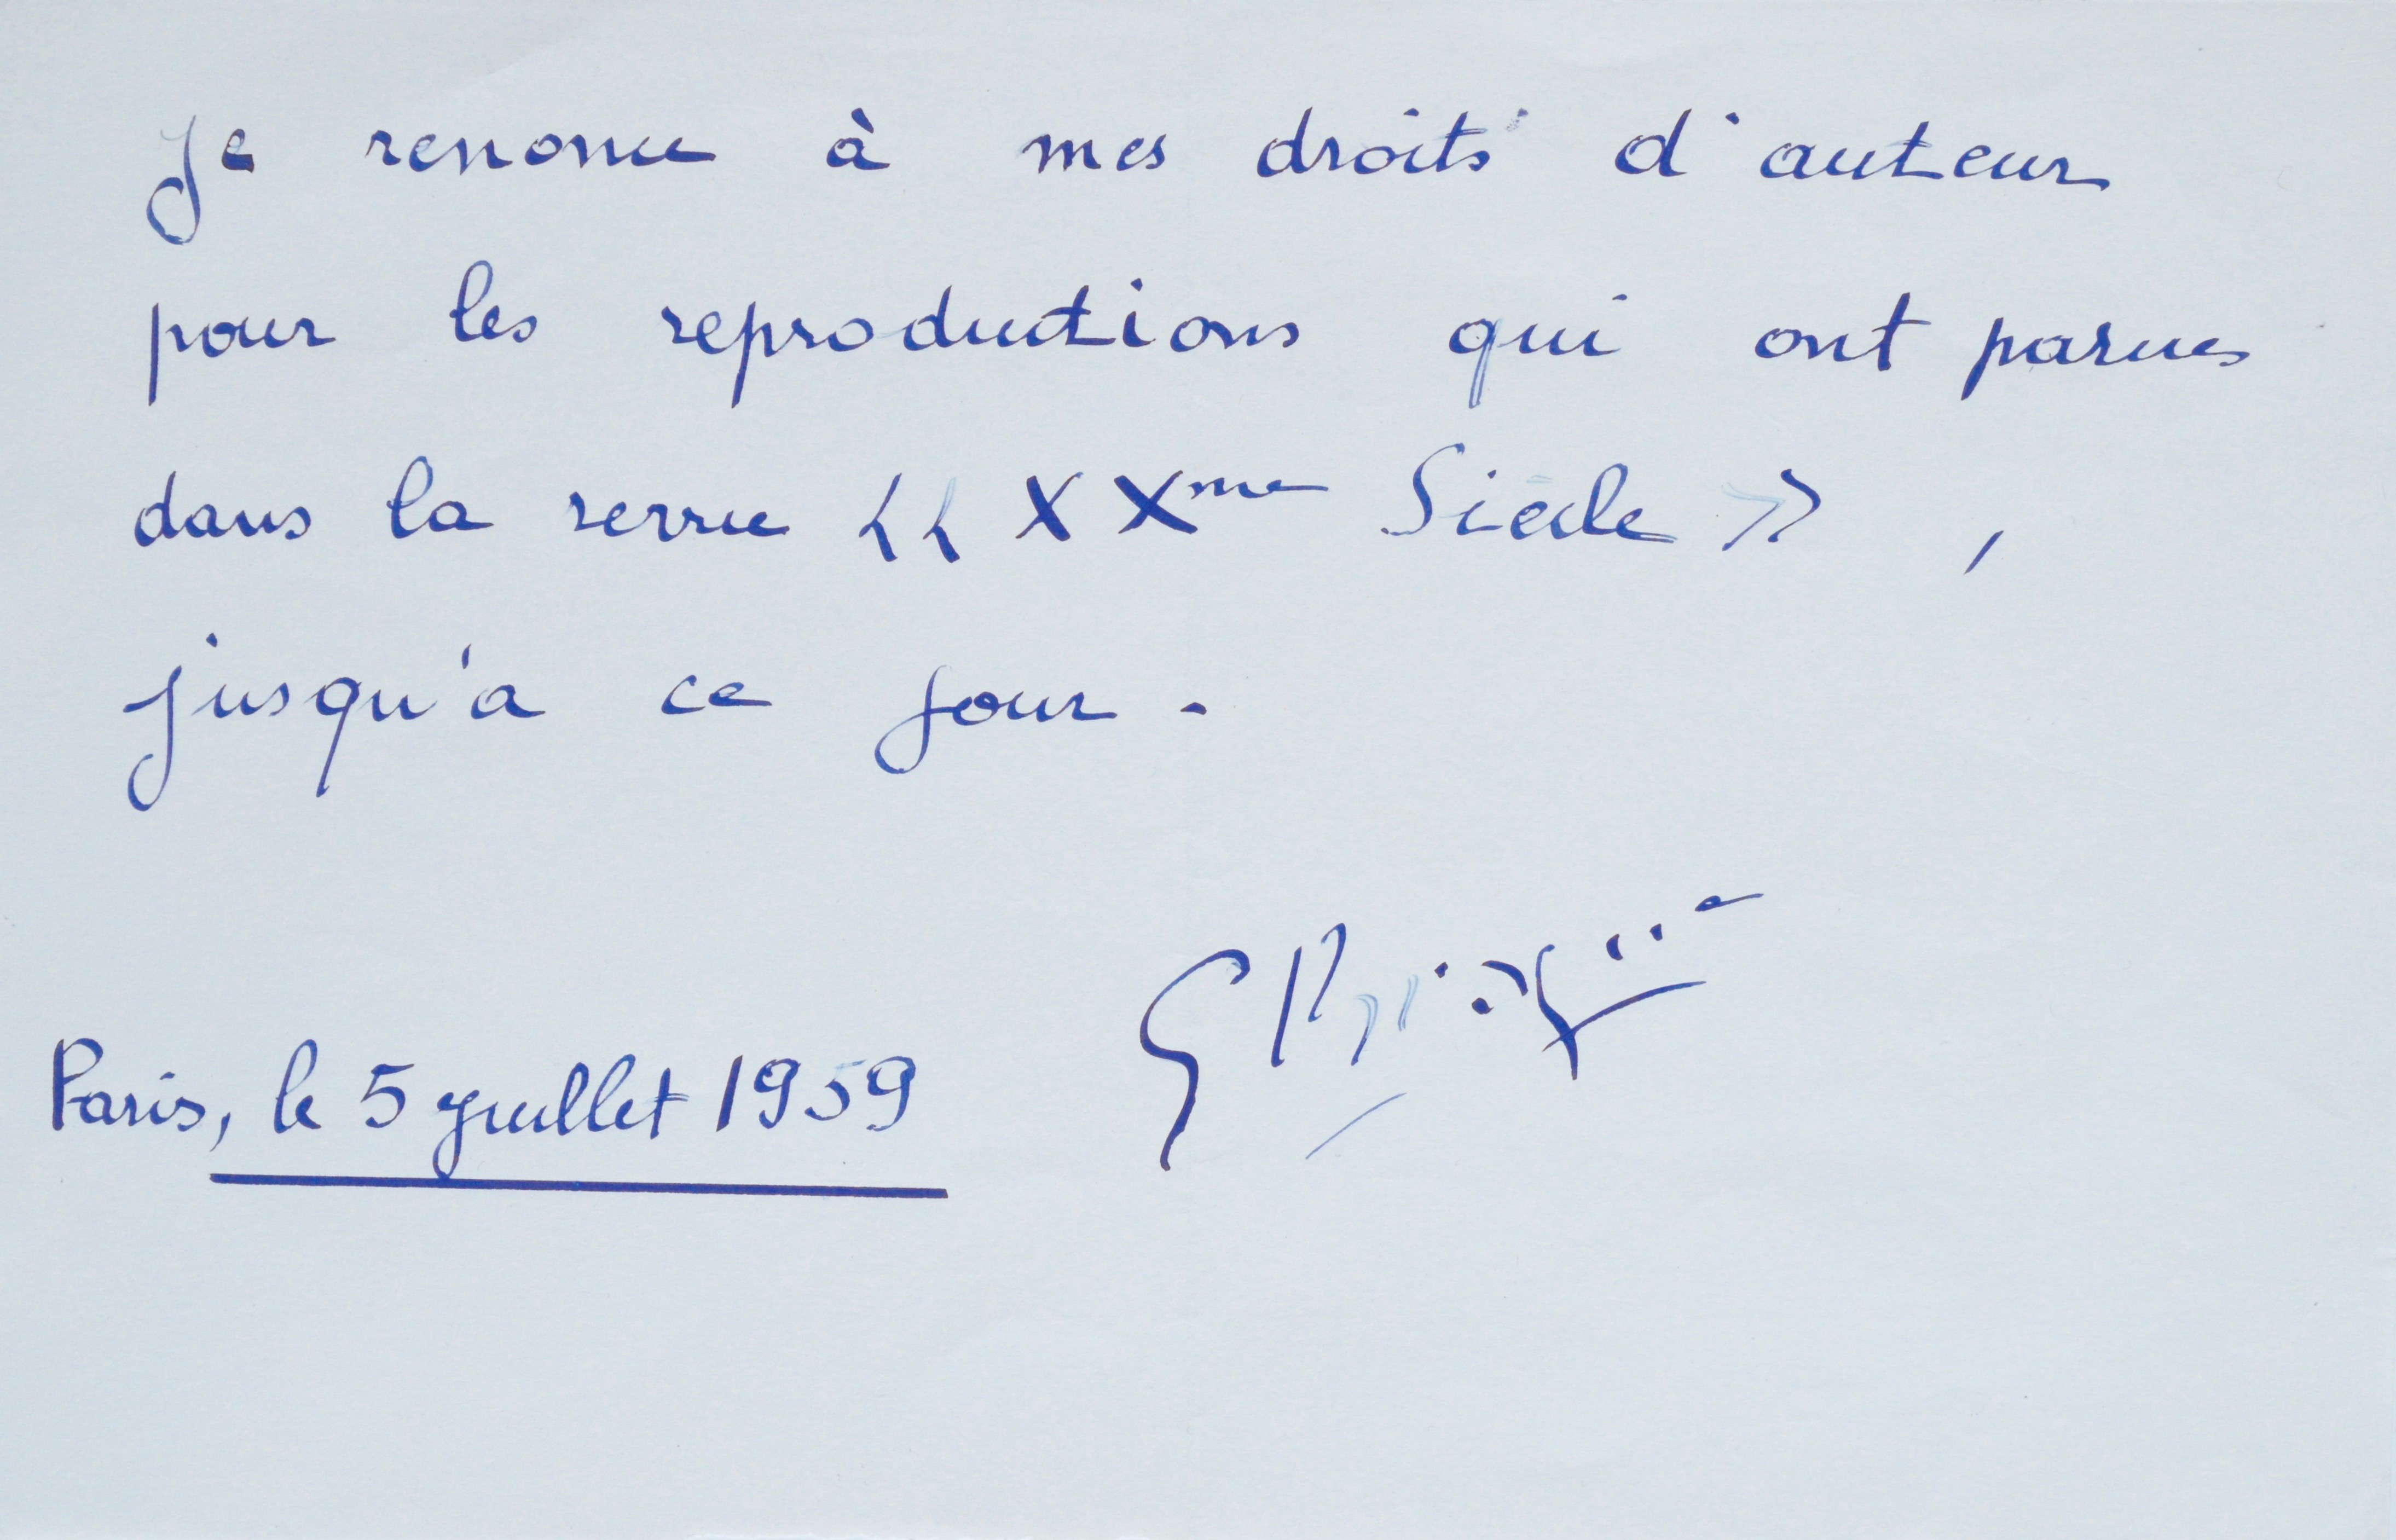 Je renonce à mes droits d'auteur
pour les reproductions qui ont parues
dans la revue << XXme Siècle >> ,
jusqu'a ce jour .
Paris, le 5 juillet 1959